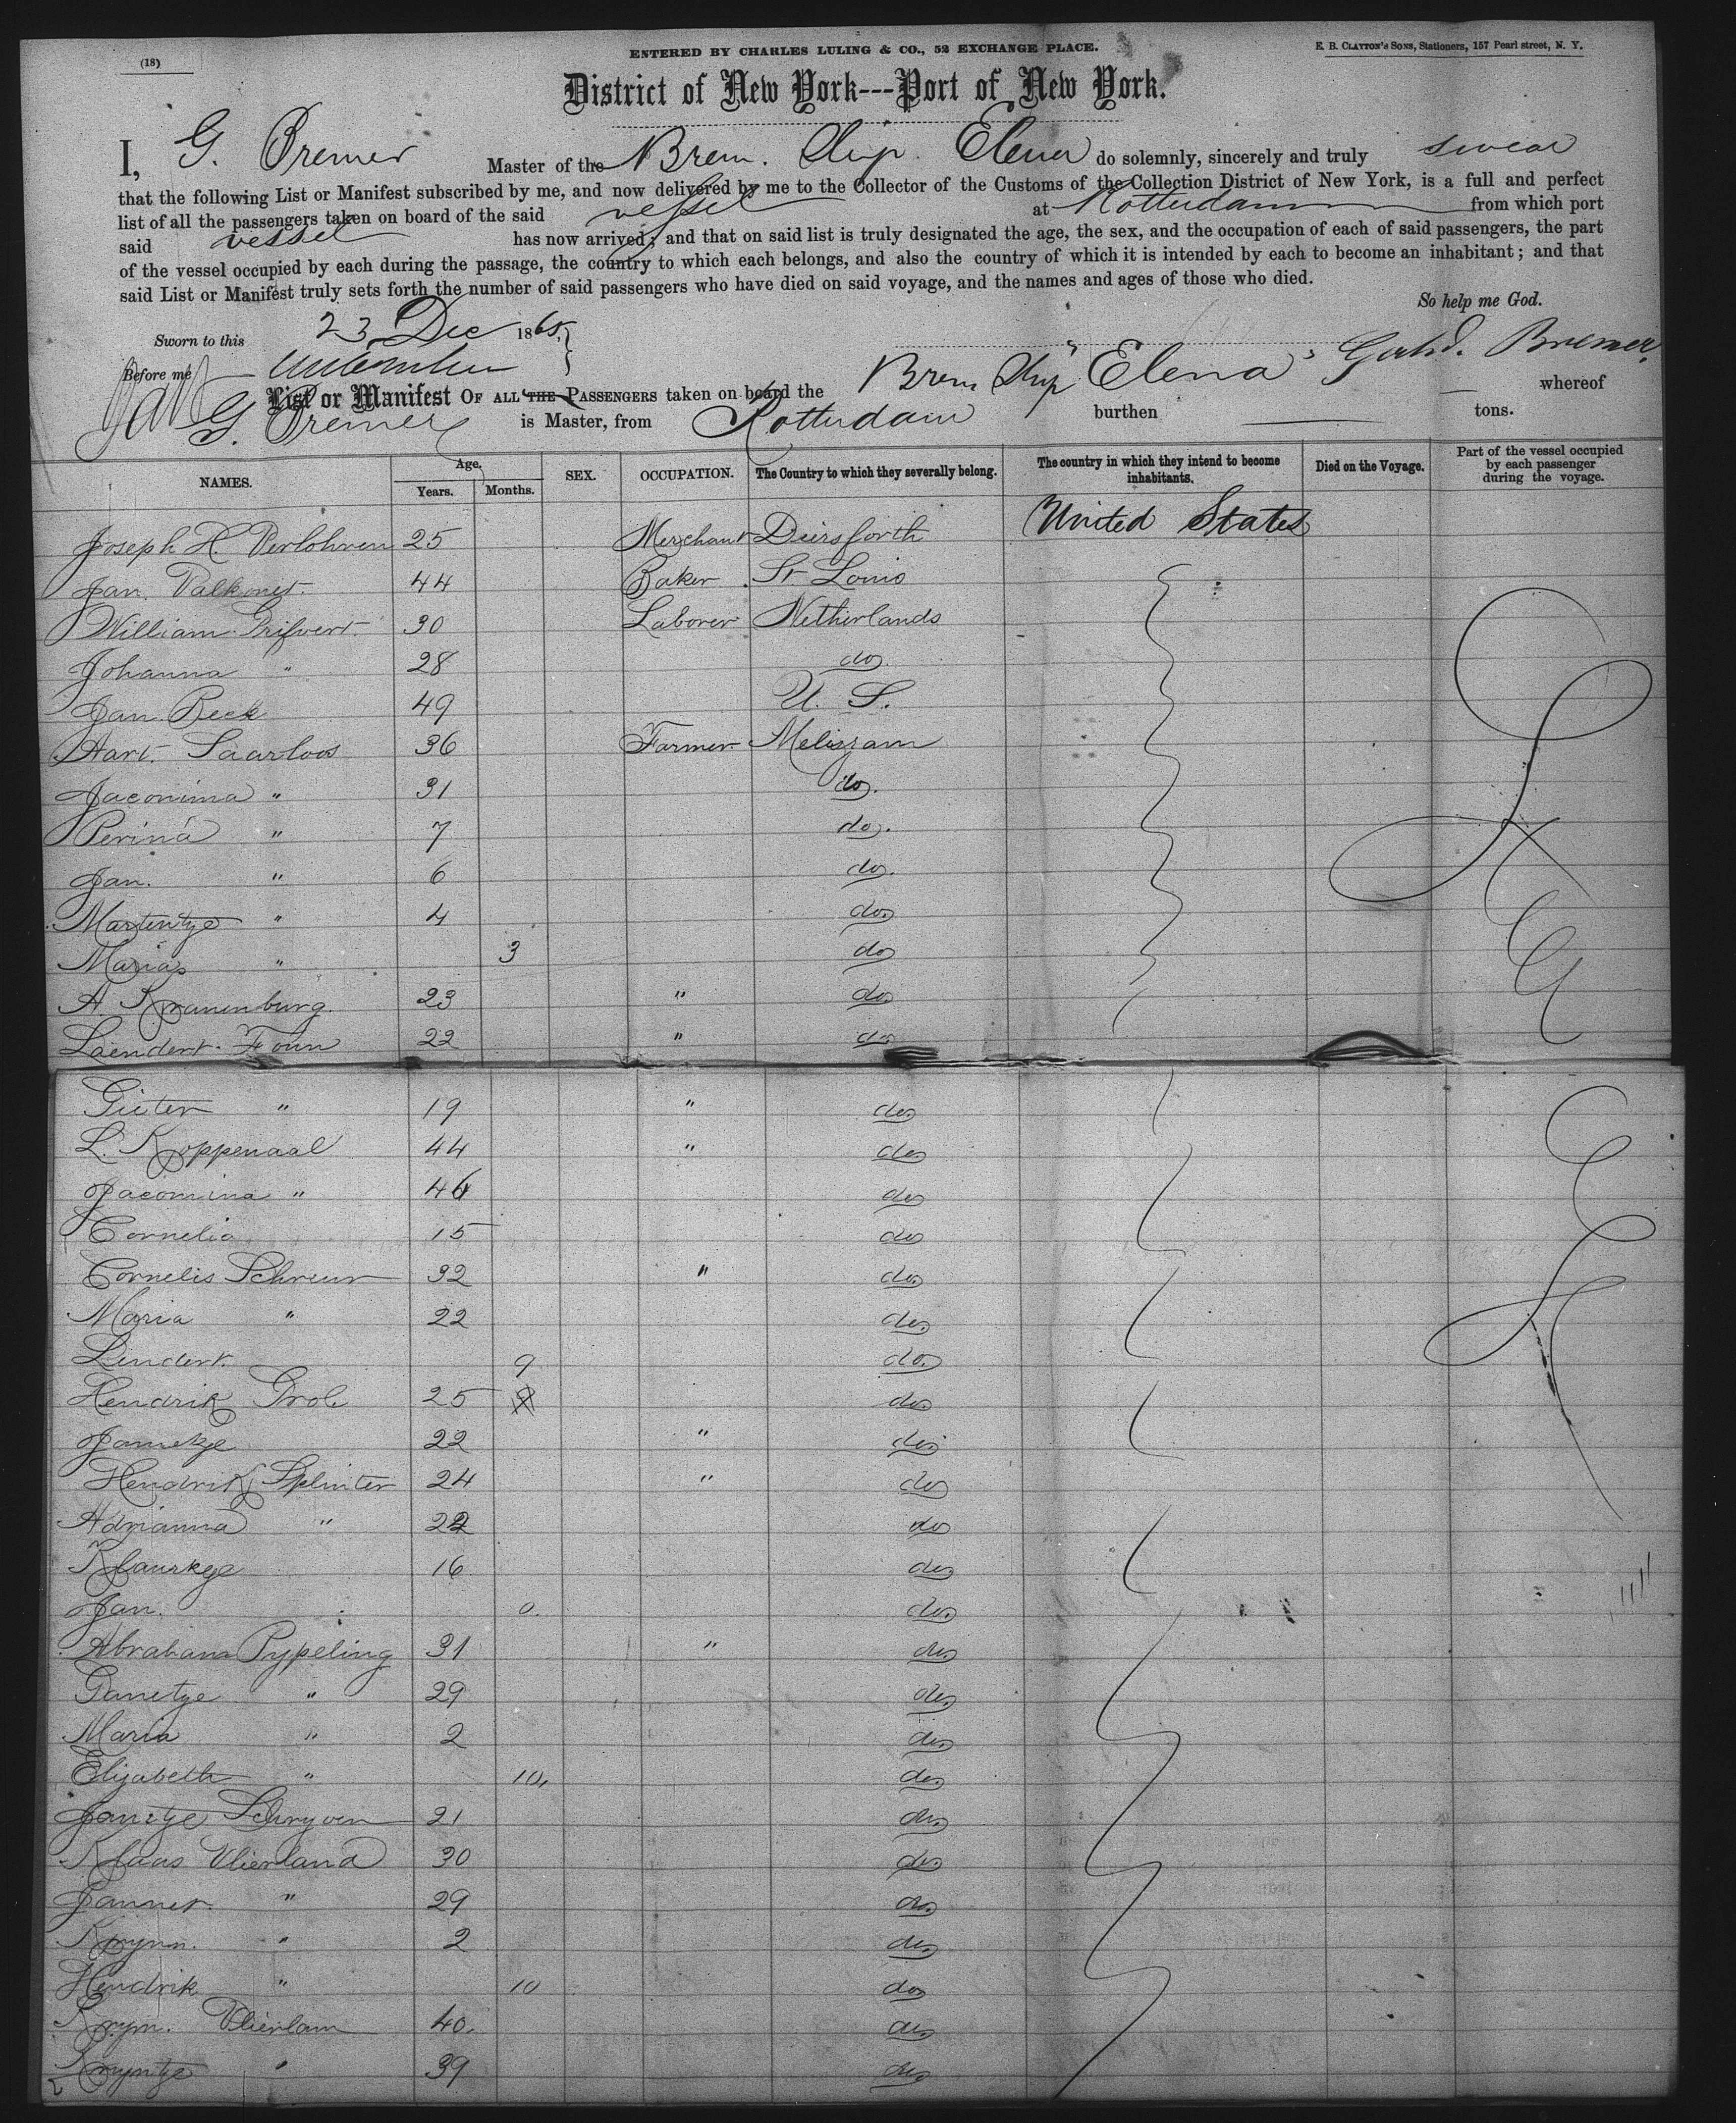 (18)
ENTERED BY CHARLES LULING & CO., 52 EXCHANGE PLACE.
E. B. CLAYTON'S SONS, Stationers, 157 Pearl street, N. Y.
District of New York---Port of New York.
I, G. Bremer Master of the Brem. Ship Elena do solemnly, sincerely and truly swear
that the following List or Manifest subscribed by me, and now delivered by me to the Collector of the Customs of the Collection District of New York, is a full and perfect
list of all the passengers taken on board of the said vessel at Rotterdam from which port
said vessel has now arrived; and that on said list is truly designated the age, the sex, and the occupation of each of said passengers, the part
of the vessel occupied by each during the passage, the country to which each belongs, and also the country of which it is intended by each to become an inhabitant; and that
said List or Manifest truly sets forth the number of said passengers who have died on said voyage, and the names and ages of those who died.
So help me God.
Sworn to this 23 Dec 1865
Before me
Gerhd. Bremer
List or Manifest OF ALL THE PASSENGERS taken on board the Brem Ship "Elena" whereof
G. Bremer is Master, from Rotterdam burthen tons.
NAMES. Age. Years. Months. SEX. OCCUPATION. The Country to which they severally belong. The country in which they intend to become inhabitants. Died on the Voyage. Part of the vessel occupied by each passenger during the voyage.
Joseph H. Verlohren 25 Merchant Diersforth United States
Jan. 44 Baker St Louis
William 30 Laborer Netherlands
Johanna " 28 do.
Jan. Beck 49 U. S.
Aart. Saarloos 36 Farmer
Jacomina " 31 do.
Perina " 7 do.
Jan. " 6 do.
Martentye " 4 do.
" 3 do
A. Kranenburg. 23 " do
Laendert 22 " do
" 19 " do.
L. Koppenaal 44 " do
Jacomina " 46 do
Cornelia 15 do
Cornelis Schreur 32 " do.
Maria " 22 do.
Lendert. 9 do.
Hendrik Grol 25 do
22 " do
Hendrik Splinter 24 " do
Adrianna " 22 do
16 do
Jan. 0. do.
Abraham Pypeling 31 " do
" 29 do.
Maria " 2 do.
Elizabeth " 10, do
Jantje Schryver 21 do.
Klaas Vlierland 30 do
Jannet. " 29 do.
Krynn. " 2 do
Hendrik " 10 do
Krijn. Vlierlam 40. do
Kryntje " 39 do